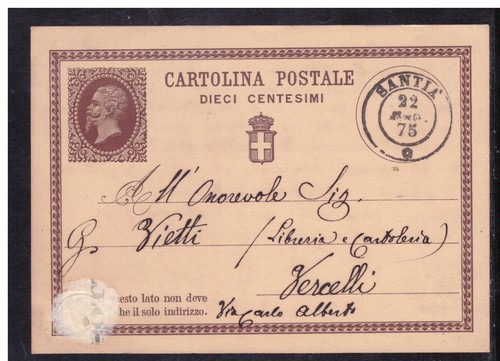 CARTOLINA POSTALE
DIECI CENTESIMI
SANTIÀ
22
75
All' Onorevole Sig.
G. Vietti (Libreria e Cartoleria)
Vercelli
Via Carlo Alberto
esto lato non deve
he il solo indirizzo.